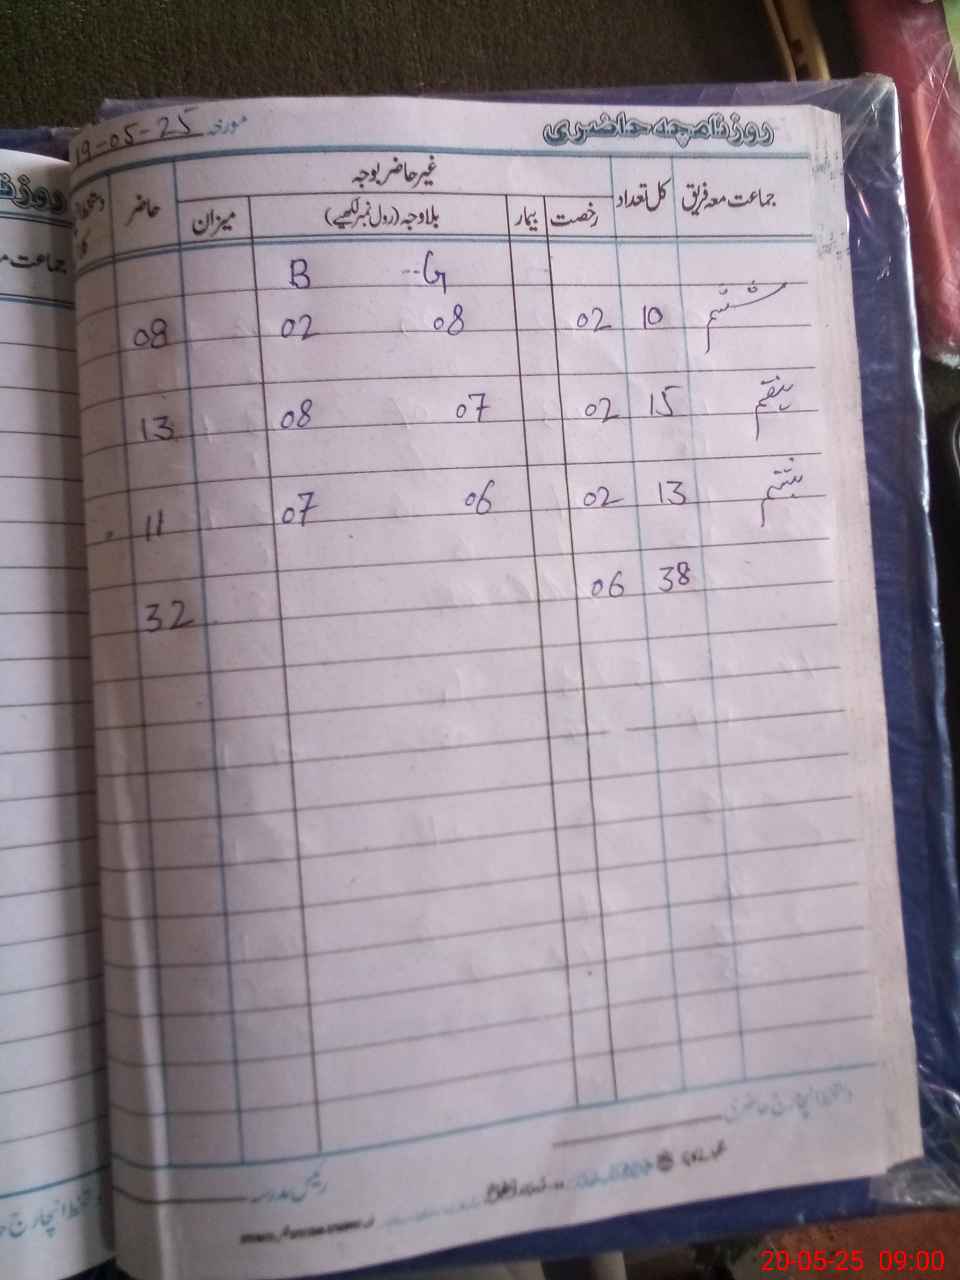 روزنامچہ حاضری مورخہ 19-05-25
جماعت معہ فریق کل تعداد غیر حاضر بوجہ حاضر
رخصت بیمار بلاوجہ (رول نمبر لکھیے) میزان
G B
ششم 10 02 08 02 08
ہفتم 15 02 07 08 13
ہشتم 13 02 06 07 11
38 06 32
دستخط انچارج حاضری
رئیس مدرسہ
20-05-25 09:00